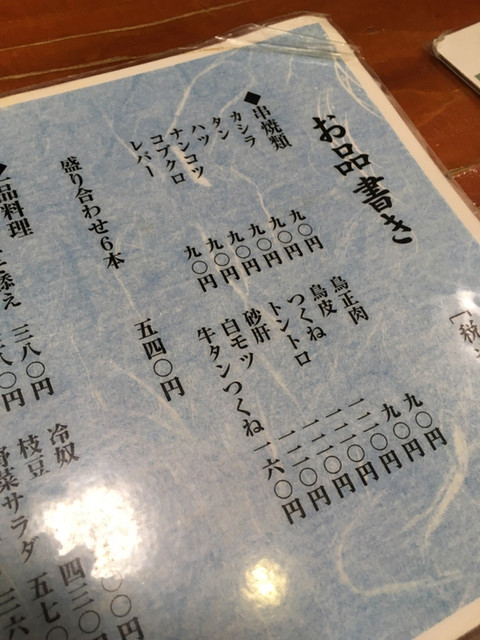 お品書き
◆串焼類
カシラ 九〇円
タン 九〇円
ハツ 九〇円
ナンコツ 九〇円
コブクロ 九〇円
レバー 九〇円
盛り合わせ6本 五四〇円
鳥正肉 九〇円
鳥皮 九〇円
つくね 一二〇円
トントロ 一二〇円
砂肝 一二〇円
白モツ 一二〇円
牛タンつくね 一六〇円
品料理
添え
三八〇円
八〇円
冷奴
枝豆
野菜サラダ